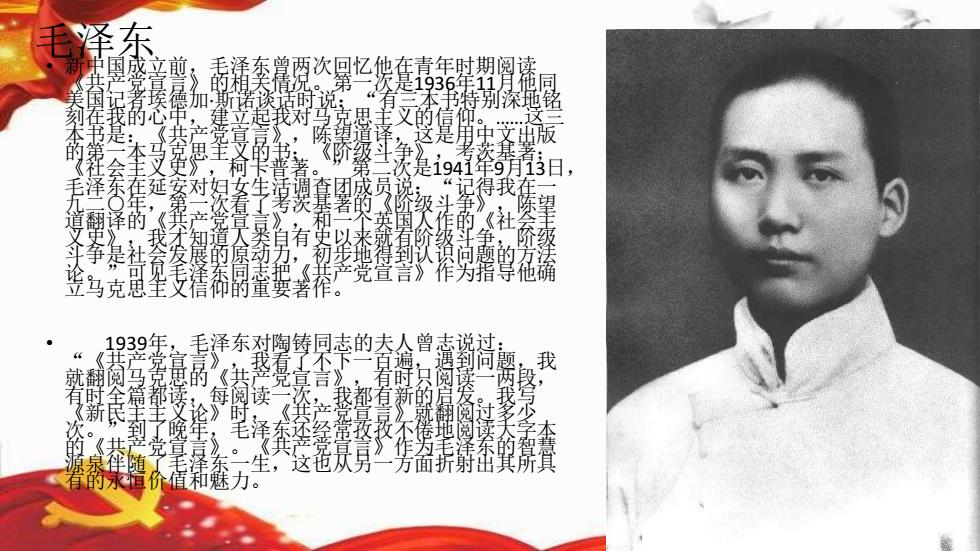 毛泽东
• 新中国成立前，毛泽东曾两次回忆他在青年时期阅读
《共产党宣言》的相关情况。第一次是1936年11月他同
美国记者埃德加·斯诺谈话时说：“有三本书特别深地铭
刻在我的心中，建立起我对马克思主义的信仰。……这三
本书是：《共产党宣言》，陈望道译，这是用中文出版
的第一本马克思主义的书；《阶级斗争》，考茨基著；
《社会主义史》，柯卡普著。”第二次是1941年9月13日，
毛泽东在延安对妇女生活调查团成员说：“记得我在一
九二〇年，第一次看了考茨基著的《阶级斗争》，陈望
道翻译的《共产党宣言》，和一个英国人作的《社会主
义史》，我才知道人类自有史以来就有阶级斗争，阶级
斗争是社会发展的原动力，初步地得到认识问题的方法
论。”可见毛泽东同志把《共产党宣言》作为指导他确
立马克思主义信仰的重要著作。
• 1939年，毛泽东对陶铸同志的夫人曾志说过：
“《共产党宣言》，我看了不下一百遍，遇到问题，我
就翻阅马克思的《共产党宣言》，有时只阅读一两段，
有时全篇都读，每阅读一次，我都有新的启发。我写
《新民主主义论》时，《共产党宣言》就翻阅过多少
次。”到了晚年，毛泽东还经常孜孜不倦地阅读大字本
的《共产党宣言》。《共产党宣言》作为毛泽东的智慧
源泉伴随了毛泽东一生，这也从另一方面折射出其所具
有的永恒价值和魅力。